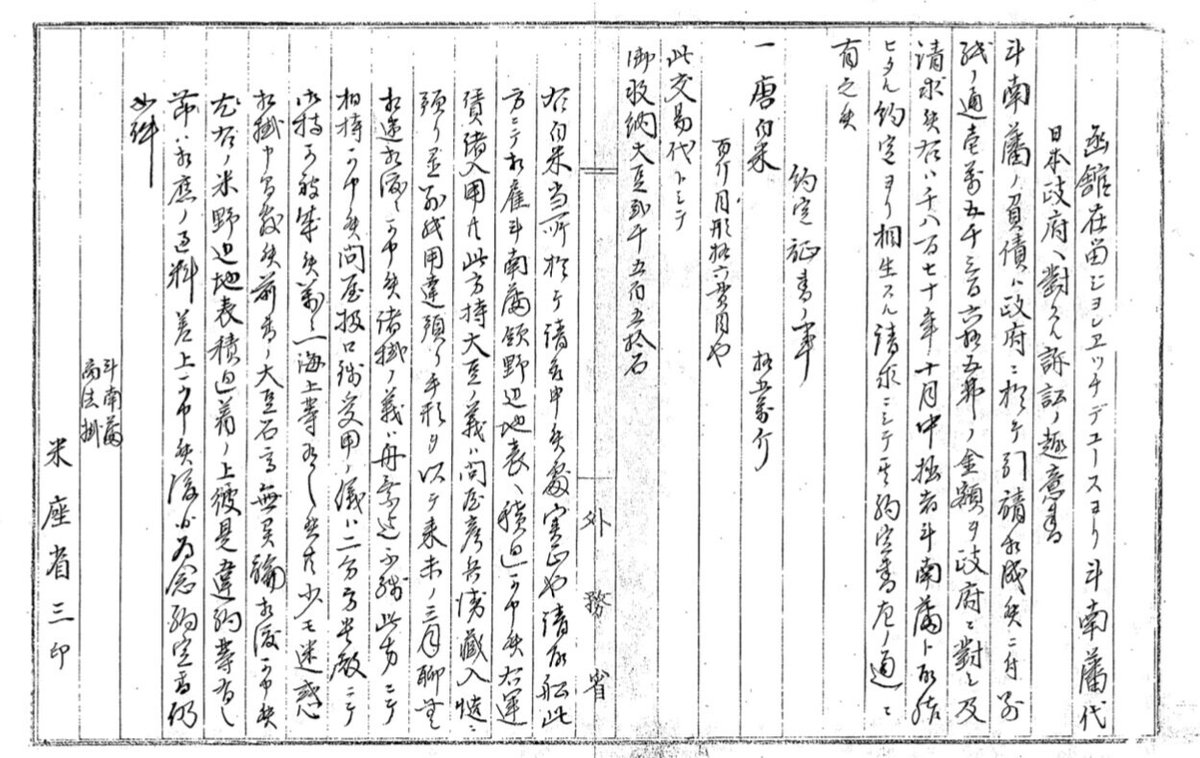 函館在留ジョンエッチデュースヨリ斗南藩代
日本政府ヘ對スル訴訟ノ趣意書
斗南藩ノ負債ハ政府ニ於テ引請相成候ニ付別
紙ノ通壱萬五千三百六拾五弗ノ金額ヲ政府ニ對シ及
請求候右ハ千八百七十年十月中拙者斗南藩ト取結
ヒタル約定ヨリ相生スル請求ニシテ其約定書左ノ通ニ
有之候
約定証書ノ事
一 唐白米 拾五萬斤
百斤ニ付形拾六貫目也
此交易代トシテ
御収納大豆弐千五百五拾石
右白米当所於テ請取申候處実正也請取船此
方ニテ相雇斗南藩領野辺地表ヘ積迴可申候右運
賃諸入用共此方持大豆ノ義ハ問屋彦兵衛蔵入慥ニ
預リ置別紙用達預リ手形ヲ以テ来未ノ三月聊無
相違相渡可申候諸掛ノ義ハ舟乗迠不残此方ニテ
相持可申候問屋扱口銭受用ノ儀ハ二分方貴殿ニテ
御持可被成候萬々一海上等有之候共少モ迷惑
相掛申間敷候前書ノ大豆石高無異論相渡可申候
尤右ノ米野辺地表積迴着ノ上彼是違約等有之
節ハ相應ノ過料差上可申候後日為念約定書仍
如件
斗南藩
商法掛
米座省三印
外務省